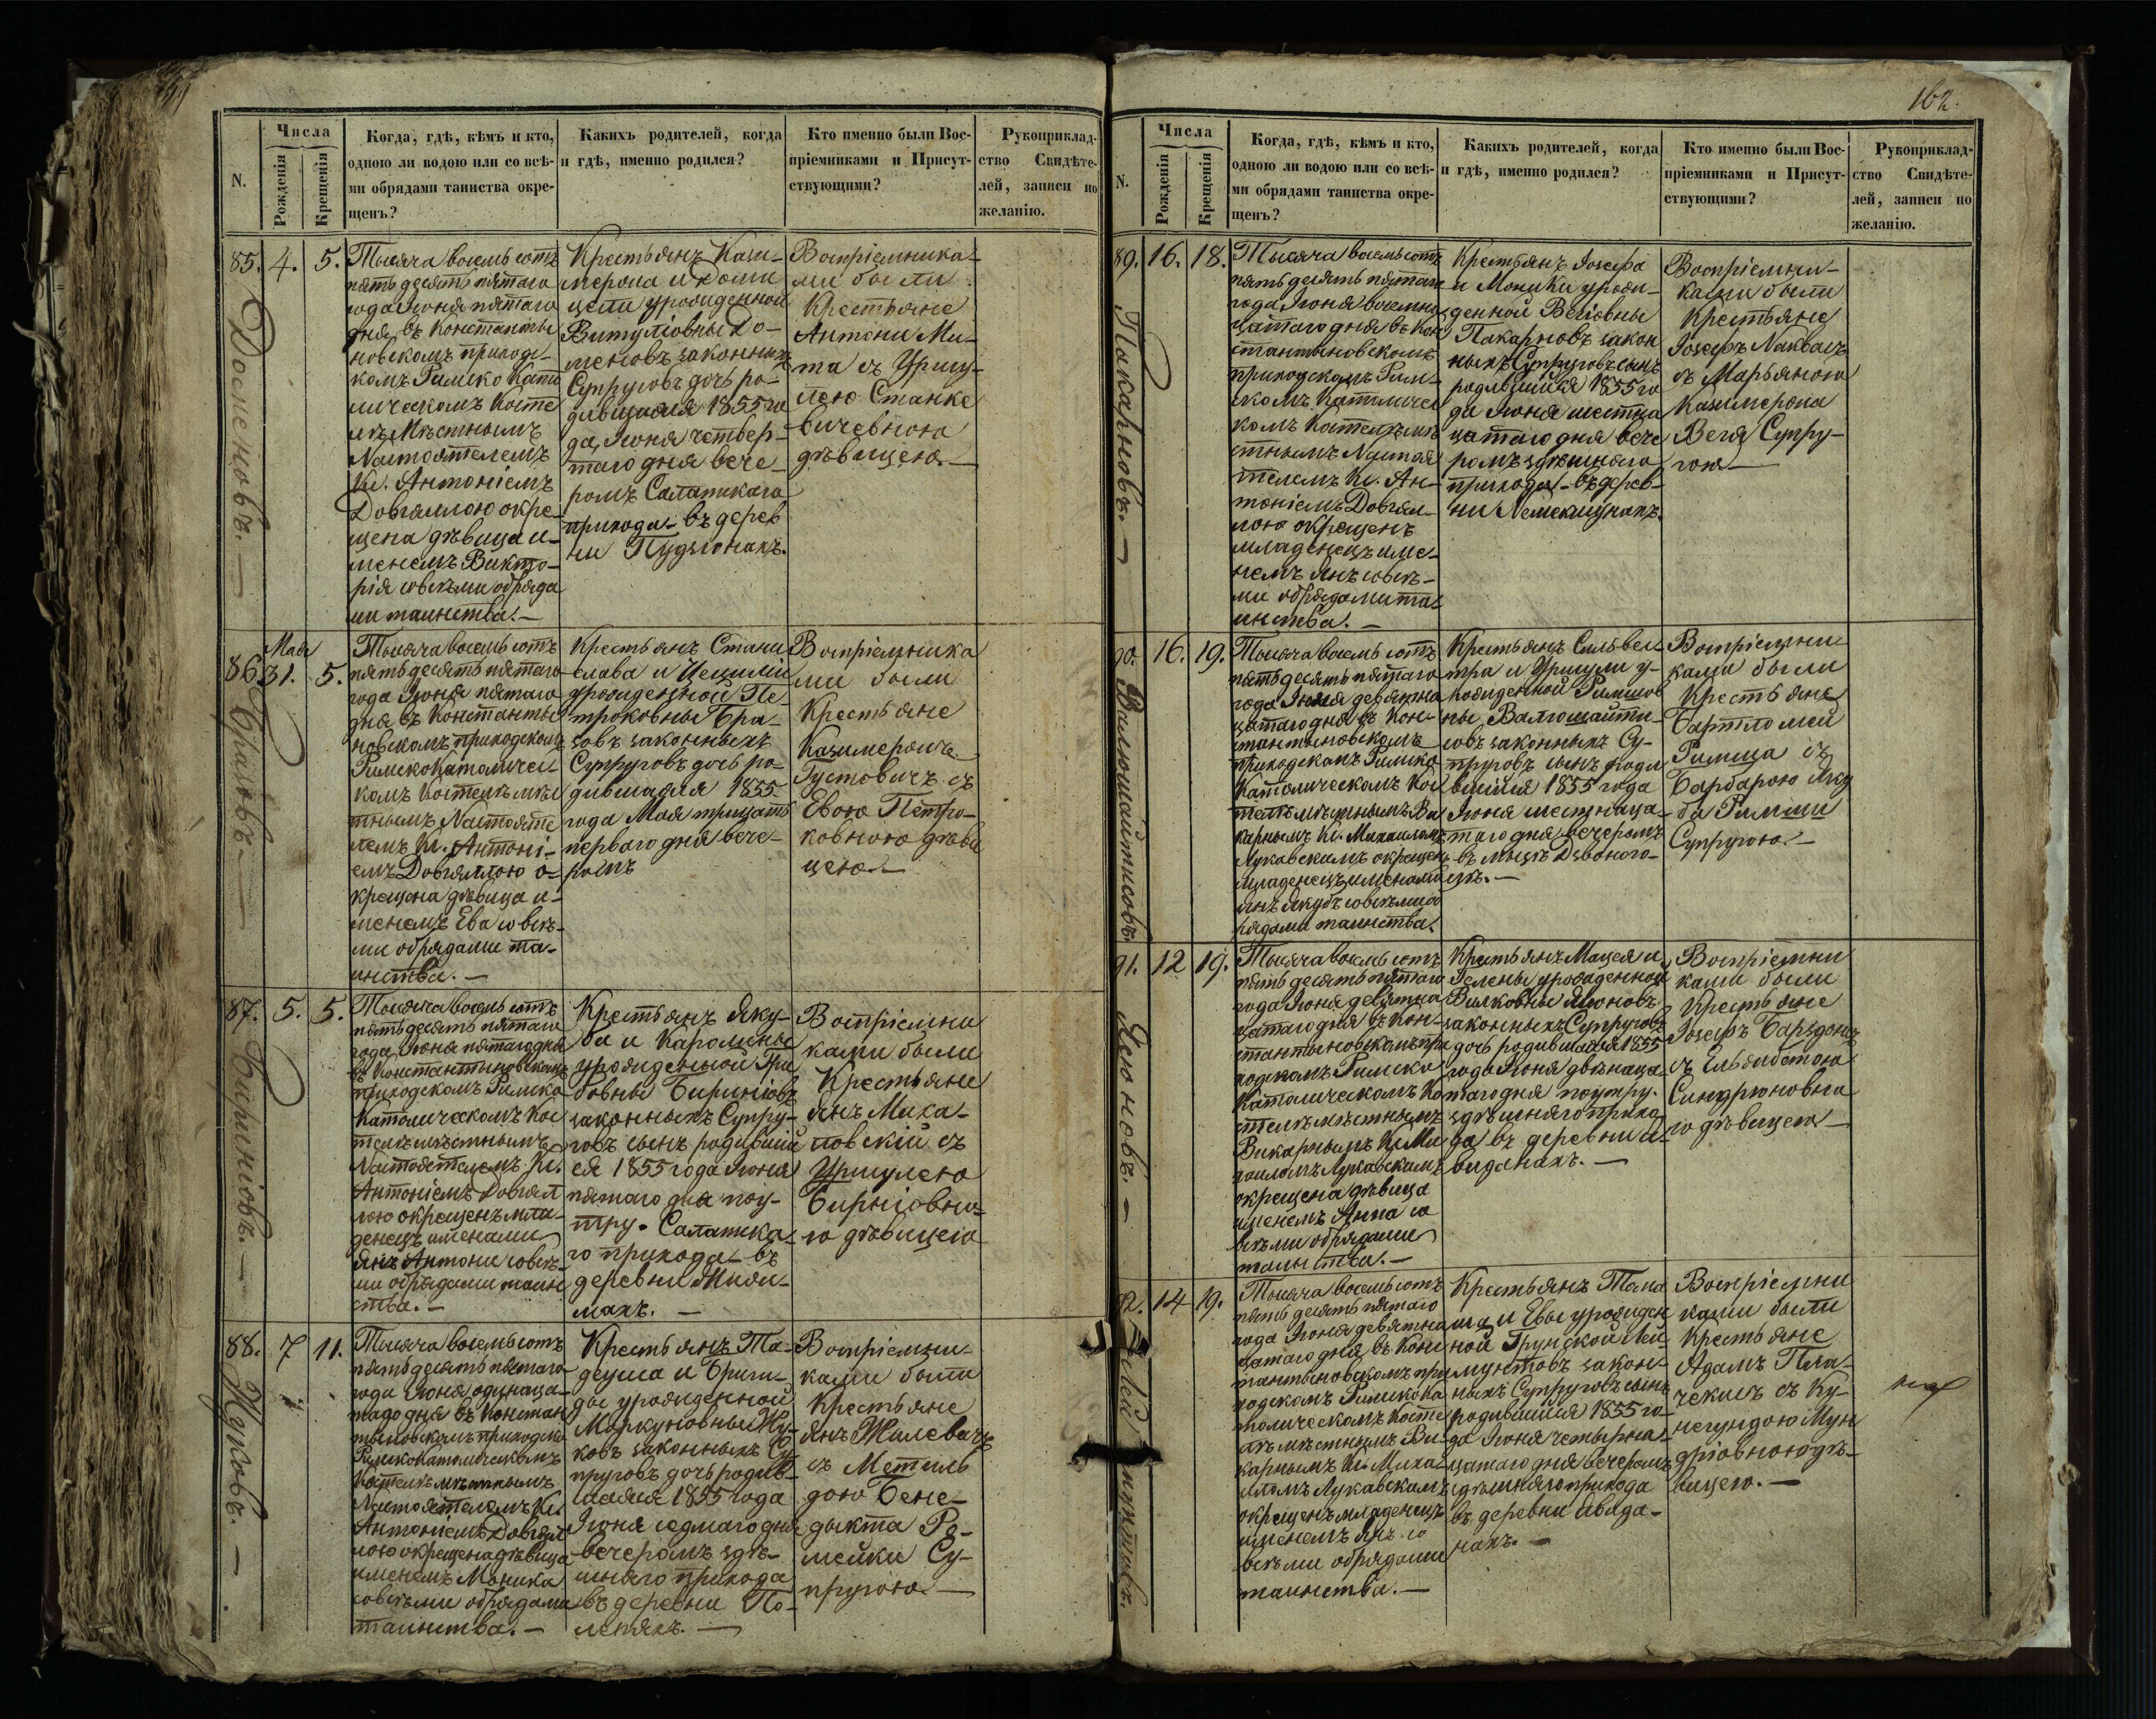 162.
N.
Числа
Рожденія
Крещенія
Когда, гдѣ, кѣмъ и кто,
одною ли водою или со всѣ-
ми обрядами таинства окре-
щенъ?
Какихъ родителей, когда
и гдѣ, именно родился?
Кто именно были Вос-
пріемниками и Присут-
ствующими?
Рукоприклад-
ство Свидѣте-
лей, записи по
желанію.
85.
4.
5.
Тысяча восемьсотъ
пятьдесятъ пятаго
года Іюня пятаго
дня въ Константы
новскомъ приход-
комъ Римско Като
лическомъ Косте
лѣ Мѣстнымъ
Настоятелемъ
Кс. Антоніемъ
Довгяллою окре-
щена дѣвица и-
менемъ Викто-
рія совсѣми обряда
ми таинства.—
Крестьянъ Кази-
мероиа и Доми
цели урожденной
Витуліовны До-
меновъ законныхъ
Супруговъ дочь ро-
дившаяся 1855 го
да, Іюня четвер-
таго дня вече-
ромъ Салатскаго
прихода въ дерев
ни Пудзіонахъ.
Воспріемника-
ми были
Крестьяне
Антони Ми-
та съ Уршу-
лею Станке
вичевною
дѣвицею.—
86.
Мая
31.
5.
Тысяча восемьсотъ
пятьдесятъ пятаго
года Іюня пятаго
дня въ Константы
новскомъ приходскомъ
Римско Католичес-
комъ Костелѣ мѣс
тнымъ Настояте
лемъ Кс. Антоні-
емъ Довгяллою о-
крещена дѣвица и-
менемъ Ева со всѣ-
ми обрядами та-
инства.—
Крестьянъ Стани
слава и Цециліи
урожденной Пе-
троковны Бра-
зовъ законныхъ
Супруговъ дочь ро-
дившаяся 1855
года Мая тридцать
перваго дня вече-
ромъ
Воспріемника
ми были
Крестьяне
Казимероиъ
Густовичъ съ
Евою Петро-
ковною дѣви
цею.—
87.
5.
5.
Биринковъ.—
Тысяча восемьсотъ
пятьдесятъ пятаго
года Іюня пятаго дня
въ Константыновскомъ
приходскомъ Римско
Католическомъ Кос
телѣ мѣстнымъ
Настоятелемъ Кс.
Антоніемъ Довгял
лою окрещенъ мла-
денецъ именами
Янъ Антони совсѣ-
ми обрядами таин
ства.—
Крестьянъ Яку-
ба и Каролины
урожденной Гри
бовны Бириніовъ
законныхъ Супру-
говъ сынъ родившій
ся 1855 года Іюня
пятаго дня поу-
тру. Салатска-
го прихода въ
деревни Мизи-
махъ.—
Воспріемни
ками были
Крестьяне
Янъ Миха-
ловскій съ
Уршулею
Бирніовн-
ю дѣвицею
88.
7
11.
Жуковъ.—
Тысяча восемьсотъ
пятьдесятъ пятаго
года Іюня одинаца-
таго дня въ Констан
тыновскомъ приходско
Римско Католическомъ
Костелѣ мѣстнымъ
Настоятелемъ Кс.
Антоніемъ Довгял
лою окрещена дѣвица
именемъ Моника
совсѣми обрядами
таинства.—
Крестьянъ Та-
деуша и Бриги-
ды урожденной
Моркуновны Жу-
ковъ законныхъ Су
пруговъ дочь родив-
шаяся 1855 года
Іюня седмаго дня
вечеромъ здѣ-
шняго прихода
въ деревни По-
лепяхъ.—
Воспріемни-
ками были
Крестьяне
Янъ Жилевичъ
съ Метиль
дою Бене-
дыкта Ро-
мейки Су-
пругою—
N.
Числа
Рожденія
Крещенія
Когда, гдѣ, кѣмъ и кто,
одною ли водою или со всѣ-
ми обрядами таинства окре-
щенъ?
Какихъ родителей, когда
и гдѣ, именно родился?
Кто именно были Вос-
пріемниками и Присут-
ствующими?
Рукоприклад-
ство Свидѣте-
лей, записи по
желанію.
89.
16.
18.
Пакарновъ.—
Тысяча восемьсотъ
пятьдесятъ пятаго
года Іюня восемна
цатаго дня въ Кон
стантыновскомъ
приходскомъ Рим-
скомъ Католичес
комъ Костелѣ мѣ
стнымъ Настоя
телемъ Кс. Ан-
тоніемъ Довгял-
лою окрещенъ
младенецъ име-
немъ Янъ совсѣ-
ми обрядами та
инства.—
Крестьянъ Іосефа
и Моники урож-
денной Веліовны
Пакарновъ закон
ныхъ Супруговъ сынъ
родившійся 1855 го
да Іюня шестна
цатаго дня вече
ромъ здѣшняго
прихода въ дерев-
ни Немекшунахъ.
Воспріемни-
ками были
Крестьяне
Іосефъ Наквасъ
съ Марьяною
Казимероиа
Веля Супру-
гою—
90.
16.
19.
Тысяча восемьсотъ
пятьдесятъ пятаго
года Іюня девятна
цатаго дня въ Кон-
стантыновскомъ
приходскомъ Римско
Католическомъ Кос
телѣ мѣстнымъ Ви
карнымъ Кс. Михаиломъ
Лукавскимъ окрещенъ
младенецъ именами
Янъ Якубъ совсѣми об
рядами таинства.
Крестьянъ Сильвес
тра и Уршули у-
рожденной Римшов
ны Валюшайти-
совъ законныхъ Су-
пруговъ сынъ роди
вшійся 1855 года
Іюня шестнаца-
таго дня вечеромъ
въ мызѣ Дзвоного-
Воспріемни
ками были
Крестьяне
Бартломей
Римша съ
Барбарою Яку
ба Римши
Супругою.—
91.
12
19.
Ясюновъ.—
Тысяча восемьсотъ
пятьдесятъ пятаго
года Іюня девятна
цатаго дня въ Кон-
стантыновскомъ при
ходскомъ Римско
Католическомъ Ко
стелѣ мѣстнымъ
Викарнымъ Кс. Ми
хаиломъ Лукавскимъ
окрещена дѣвица
именемъ Анна со
всѣми обрядами
таинства.—
Крестьянъ Мацея и
Гелены урожденной
Вилковны Ясюновъ
законныхъ Супруговъ
дочь родившаяся 1855
года Іюня двѣнаца
таго дня поутру.
здѣшняго прихо
да въ деревни А-
виданахъ.—
Воспріемни
ками были
Крестьяне
Іосефъ Барздонъ
съ Ельзбетою
Синдрюновно
ю дѣвицею—
92.
14
19.
Тысяча восемьсотъ
пятьдесятъ пятаго
года Іюня девятна
цатаго дня въ Конс
тантыновскомъ при
ходскомъ Римско Ка
толическомъ Косте
лѣ мѣстнымъ Ви-
карнымъ Кс. Миха-
иломъ Лукавскимъ
окрещенъ младенецъ
именемъ Янъ со
всѣми обрядами
таинства.—
Крестьянъ Тома
ша и Евы урожден
ной Грунской Лей-
мунтовъ закон-
ныхъ Супруговъ сынъ
родившійся 1855 го-
да Іюня четырна-
цатаго дня вечеромъ
здѣшняго прихода
въ деревни Авида-
нахъ.—
Воспріемни
ками были
Крестьяне
Адамъ Пла-
чекисъ съ Ку-
негундою Мун
дріовною дѣ-
вицею.—